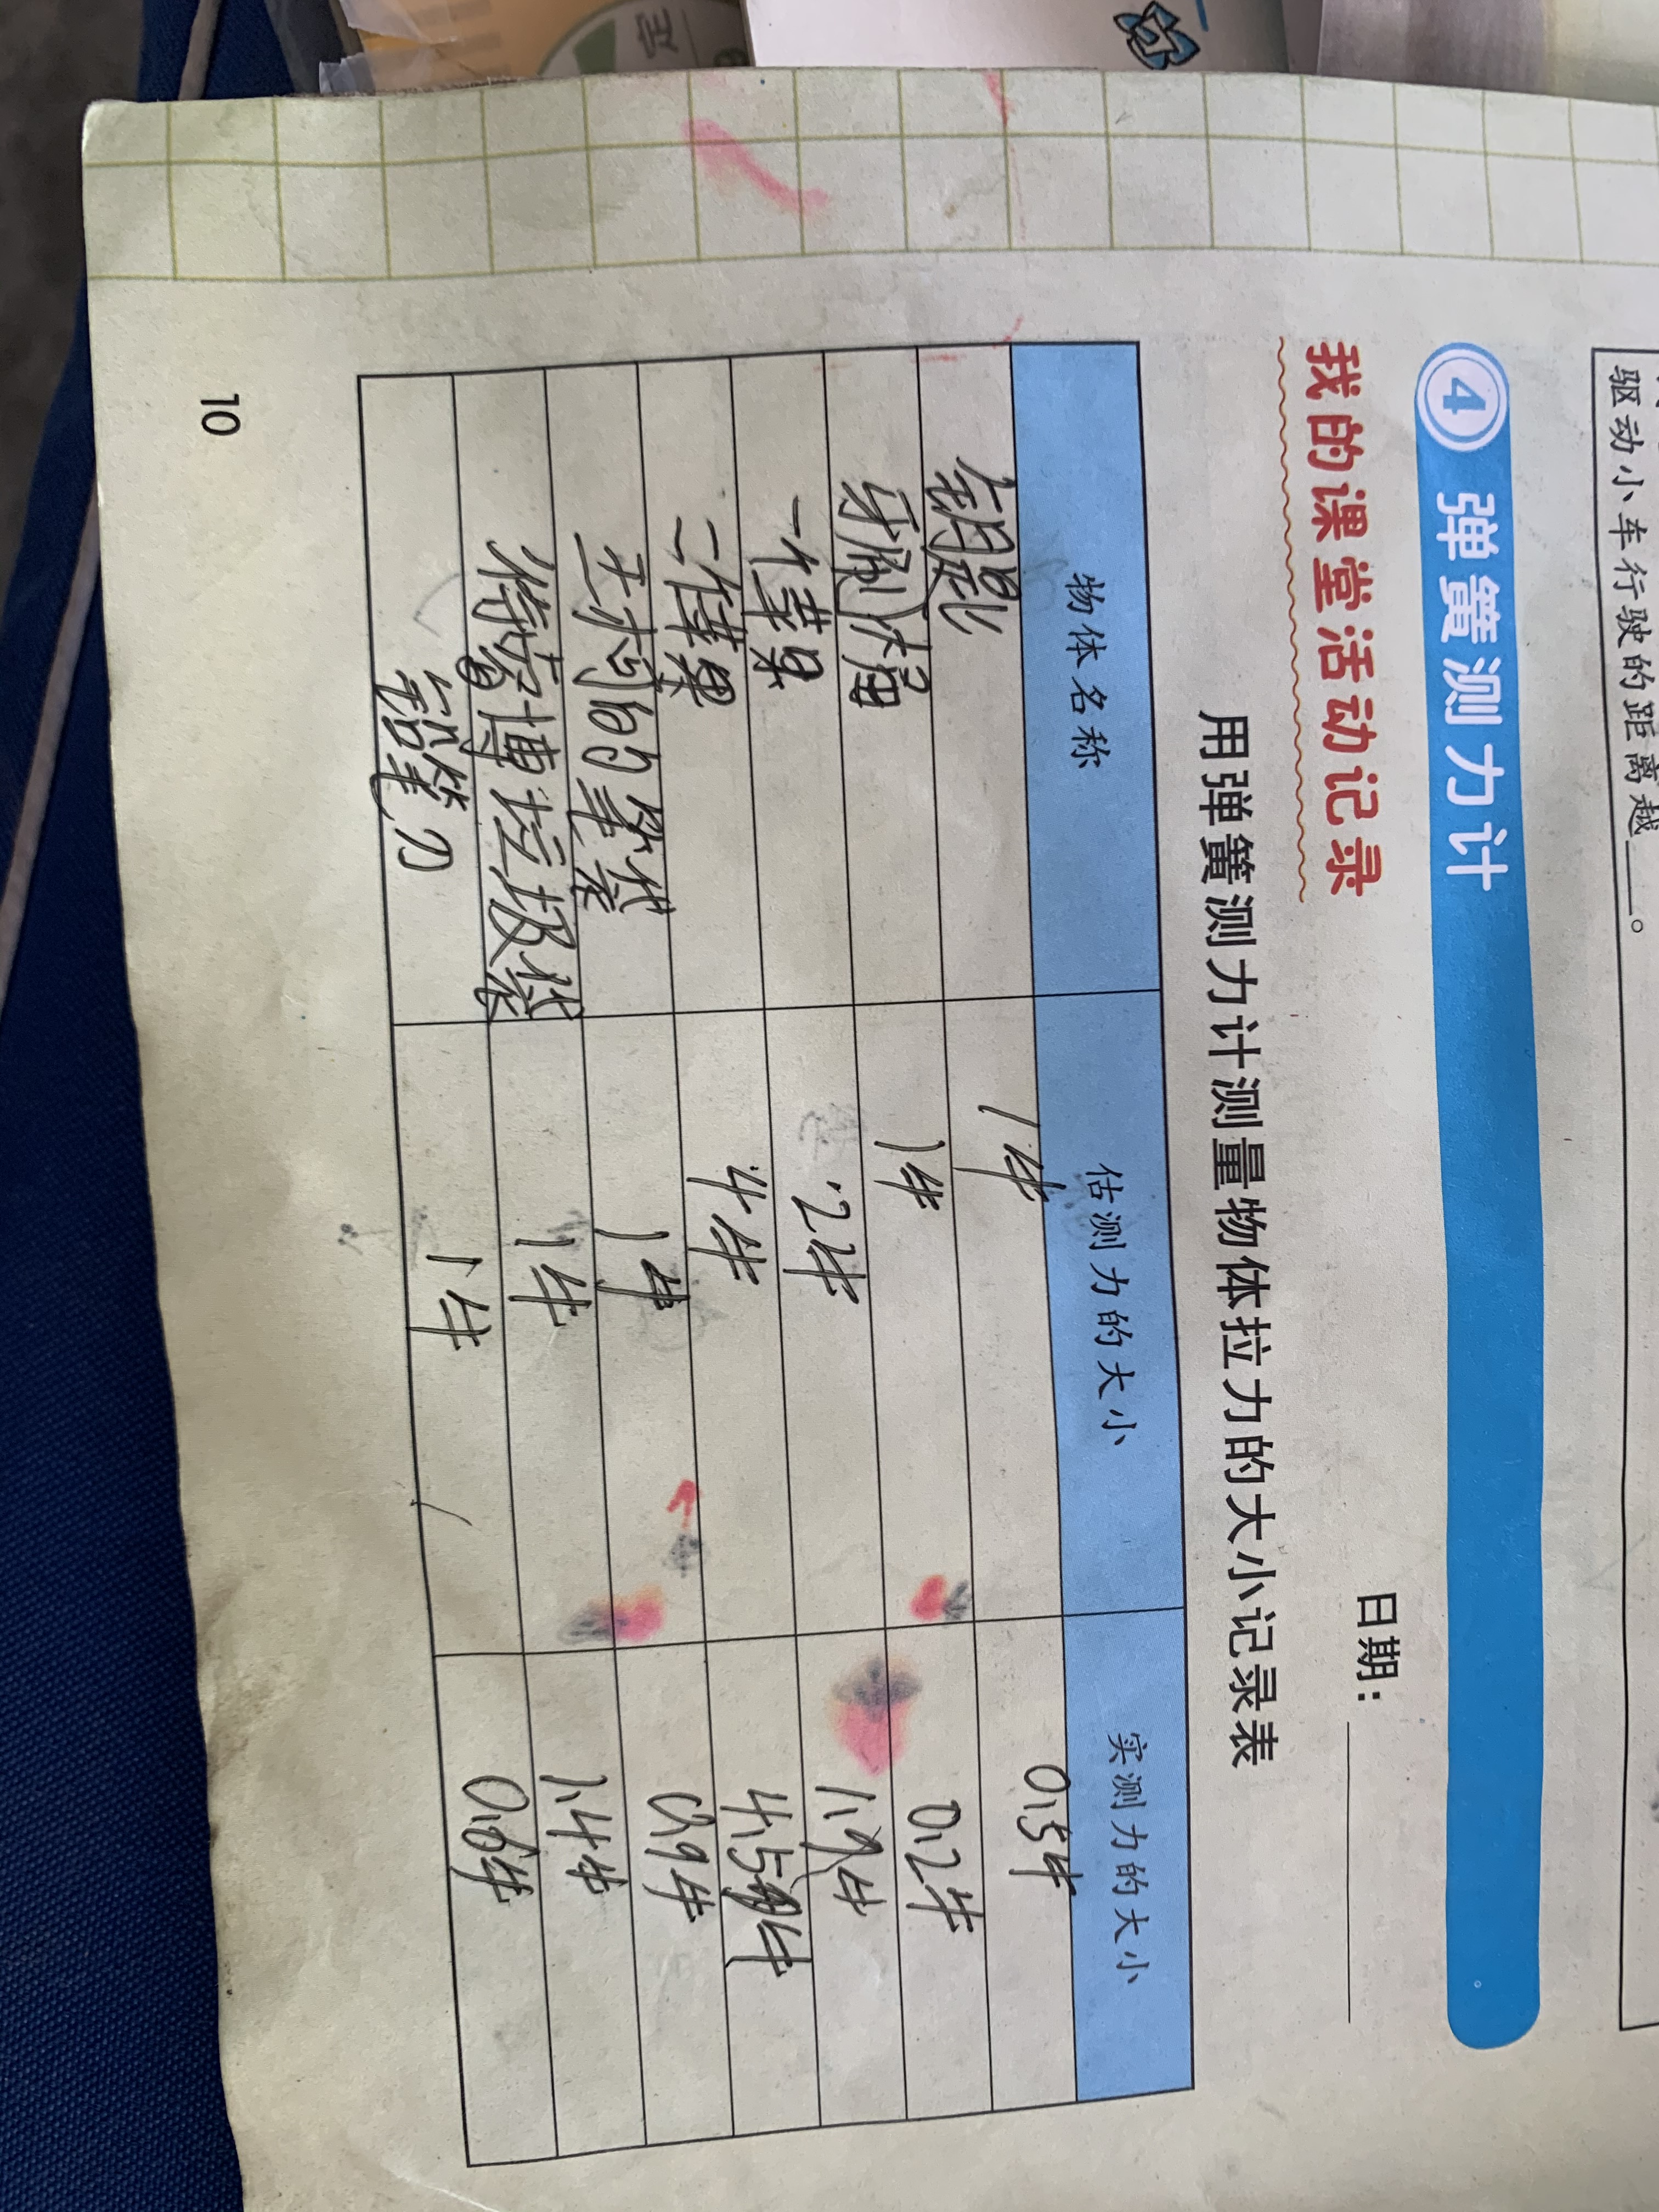 定
驱动小车行驶的距离越____。
4 弹簧测力计
我的课堂活动记录
日期：
用弹簧测力计测量物体拉力的大小记录表
物体名称 估测力的大小 实测力的大小
钥匙 1牛 0.5牛
牙刷 1牛 0.2牛
2牛 1.9牛
4牛 4.5牛
的笔袋 1牛 0.9牛
垃圾袋 1牛 1.4牛
铅笔刀 1牛 0.6牛
10